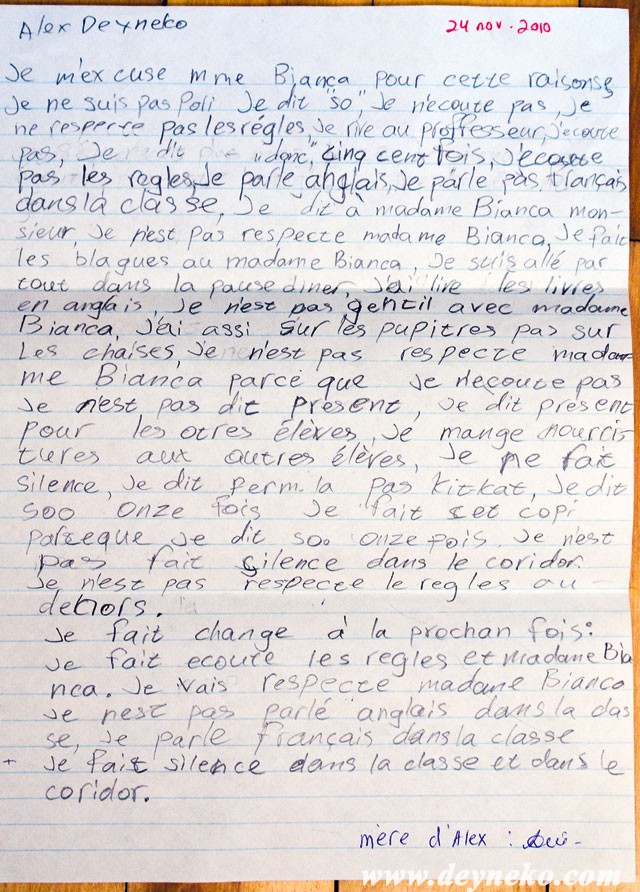 Alex Deyneko
24 nov. 2010
Je m'excuse mme Bianca pour cette raisons
Je ne suis pas Poli Je dit "so", Je n'ecoute pas, Je
ne respecte pas les régles, Je rire au proffesseur, j'ecoute
pas, Je dit "donc", cinq cent fois, j'écoute
pas les regles, Je parle anglais, Je parle pas français
dans la classe, Je dit à madame Bianca mon-
sieur, Je n'est pas respecte madame Bianca, Je fait
les blagues au madame Bianca, Je suis allé par
tout dans la pause diner, J'ai lire les livres
en anglais, Je n'est pas gentil avec madame
Bianca, J'ai assi sur les pupitres pas sur
Les chaises, Je n'est pas respecte mada-
me Bianca parce que Je n'ecoute pas
Je n'est pas dit présent, Je dit présent
pour les otres élèves, Je mange nourris
tures aux autres élèves, Je ne fait
silence, Je dit ferm. la pas Kitkat, Je dit
soo onze fois Je fait cet copi
parseque Je dit soo onze fois. Je n'est
pas fait silence dans le coridor.
Je n'est pas respecte le regles au-
dehors.
Je fait change à la prochan fois:
Je fait ecoute les regles et madame Bia
nca. Je vais respecte madame Bianca
Je nest pas parlé anglais dans la clas
se, Je parle français dans la classe
+ Je fait silence dans la classe et dans le
coridor.
mère d'Alex :
www.deyneko.com